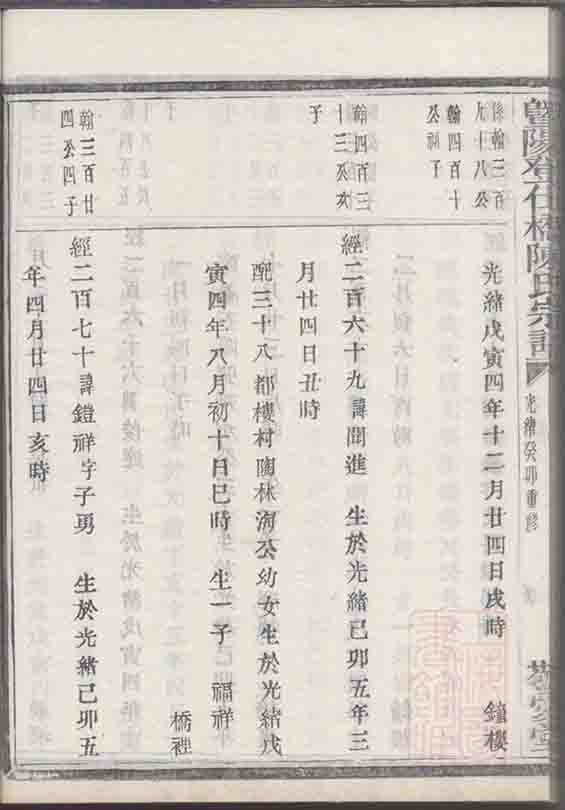 暨陽登仕橋陳氏宗譜
光緒癸卯重修
係翰三百
九十八公
翰四百十
公
子
光緒戊寅四年十二月廿四日戌時 鐘樓
翰四百三
十三公亥
子
經二百六十九諱聞進 生於光緒己卯五年三
月廿四日丑時
配三十八都樓村陶林海公幼女生於光緒戊
寅四年八月初十日巳時 生一子 福祥
橋裡
翰三百廿
四公四子
經二百七十諱鐙祥字子勇 生於光緒己卯五
年四月廿四日亥時